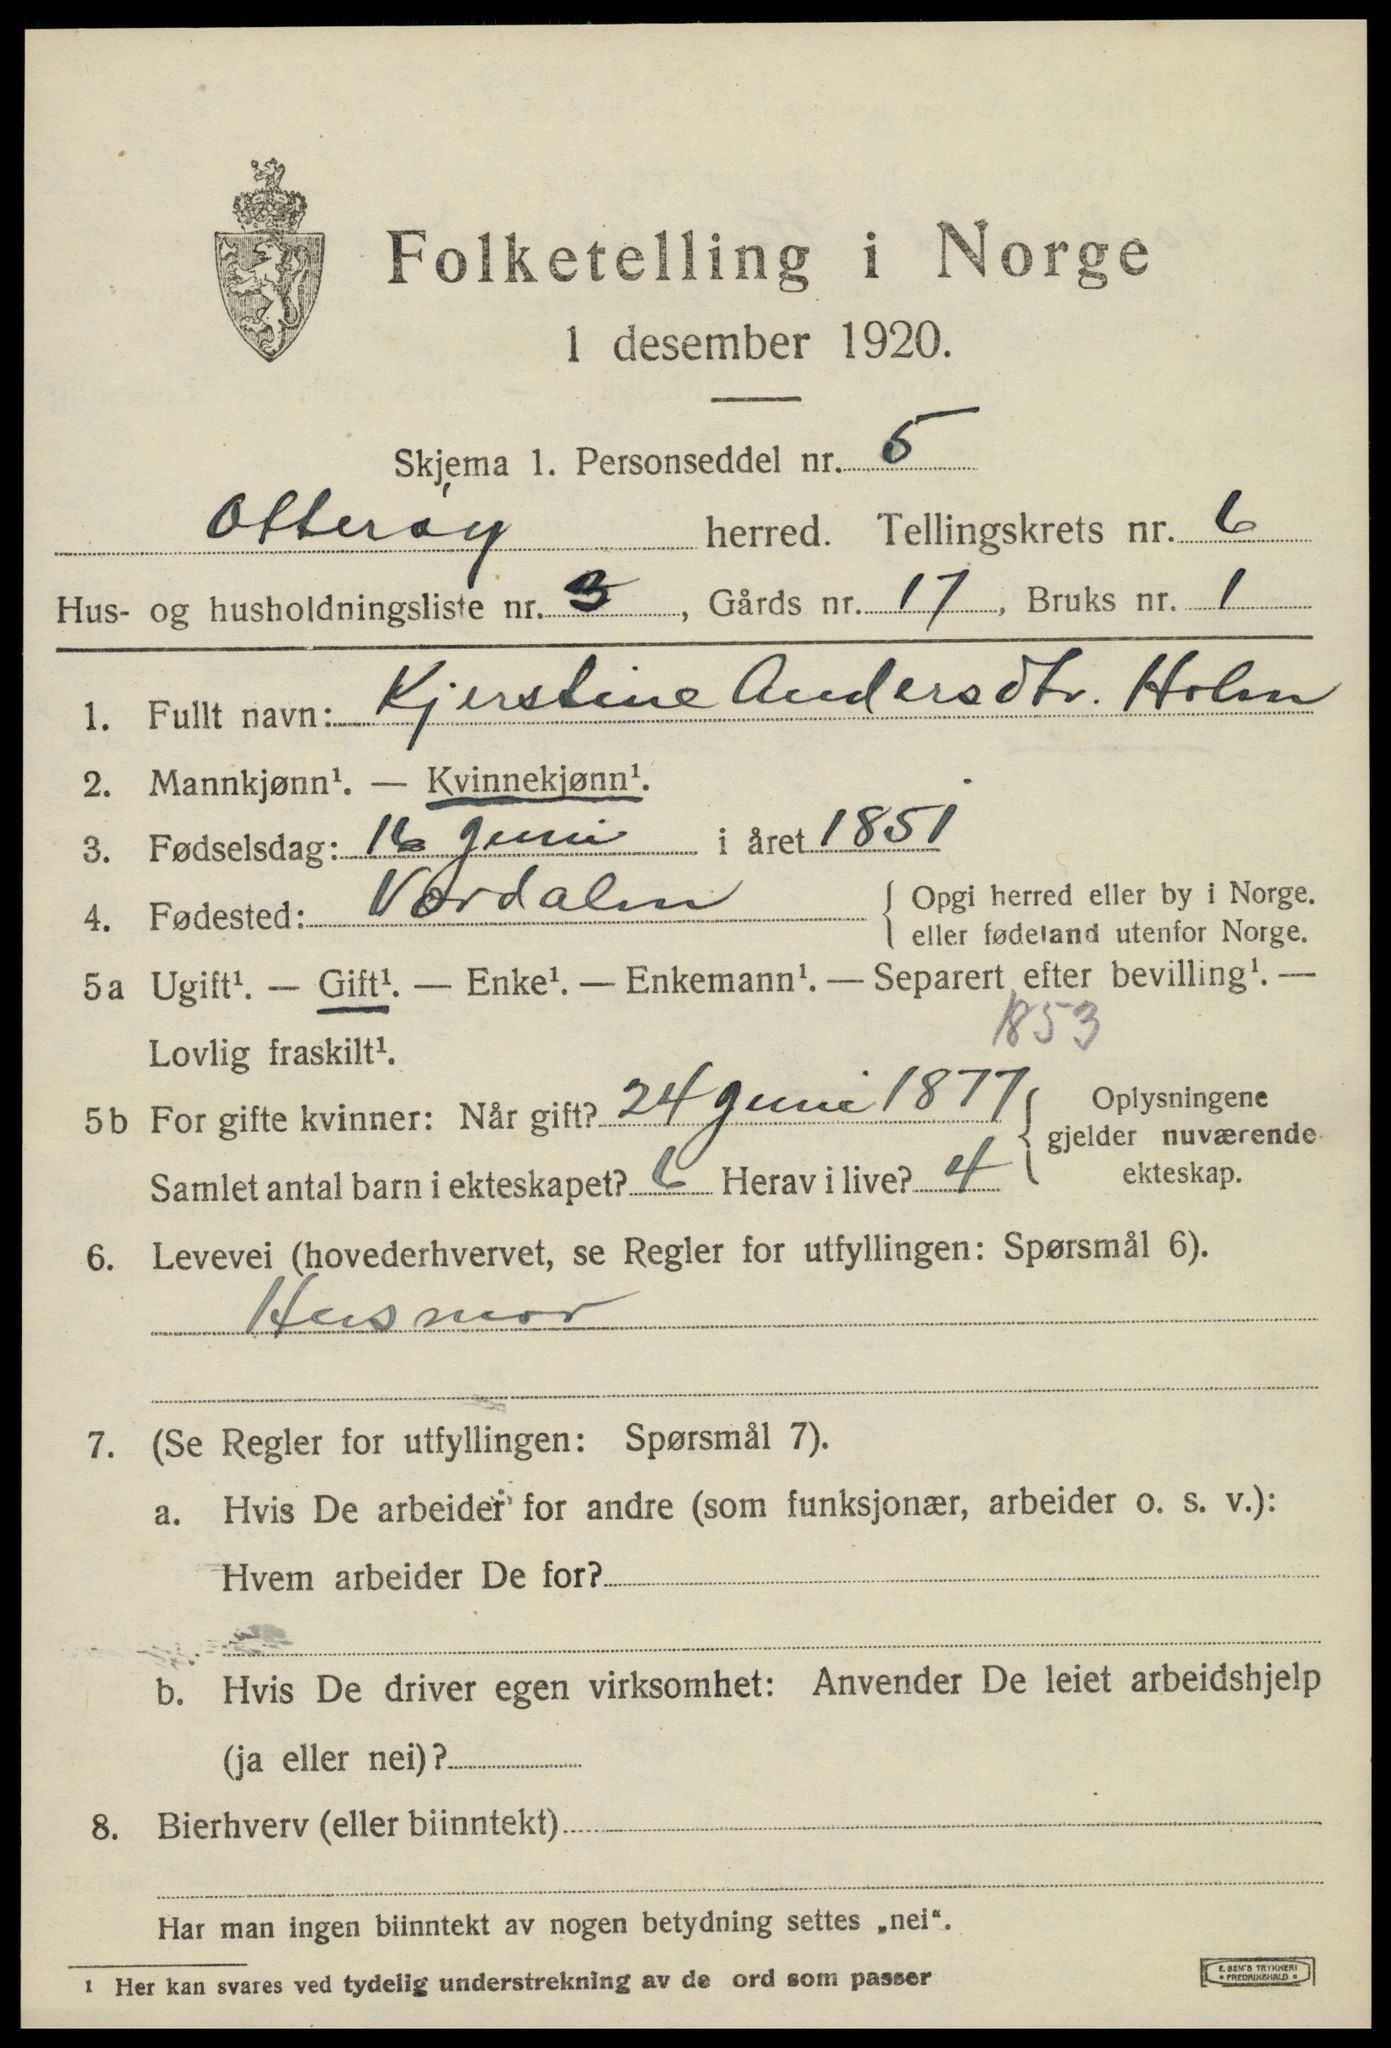 Folketelling i Norge
1 desember 1920.
Skjema 1. Personseddel nr. 5
Otterøy herred. Tellingskrets nr. 6
Hus- og husholdningsliste nr. 3, Gårds nr. 17, Bruks nr. 1
1. Fullt navn: Kjerstine Andersdtr. Holm
2. Mannkjønn¹. — Kvinnekjønn¹.
3. Fødselsdag: 16 juni i året 1851
4. Fødested: Værdalen { Opgi herred eller by i Norge.
eller fødeland utenfor Norge.
5a Ugift¹. — Gift¹. — Enke¹. — Enkemann¹. — Separert efter bevilling¹. —
Lovlig fraskilt¹.
1853
5b For gifte kvinner: Når gift? 24 juni 1877 { Oplysningene
gjelder nuværende
Samlet antal barn i ekteskapet? 6 Herav i live? 4 ekteskap.
6. Levevei (hovederhvervet, se Regler for utfyllingen: Spørsmål 6).
Husmor
7. (Se Regler for utfyllingen: Spørsmål 7).
a. Hvis De arbeider for andre (som funksjonær, arbeider o. s. v.):
Hvem arbeider De for?
b. Hvis De driver egen virksomhet: Anvender De leiet arbeidshjelp
(ja eller nei)?
8. Bierhverv (eller biinntekt)
Har man ingen biinntekt av nogen betydning settes „nei“.
¹ Her kan svares ved tydelig understrekning av de ord som passer
E. SEM'S TRYKKERI
• FREDRIKSHALD •